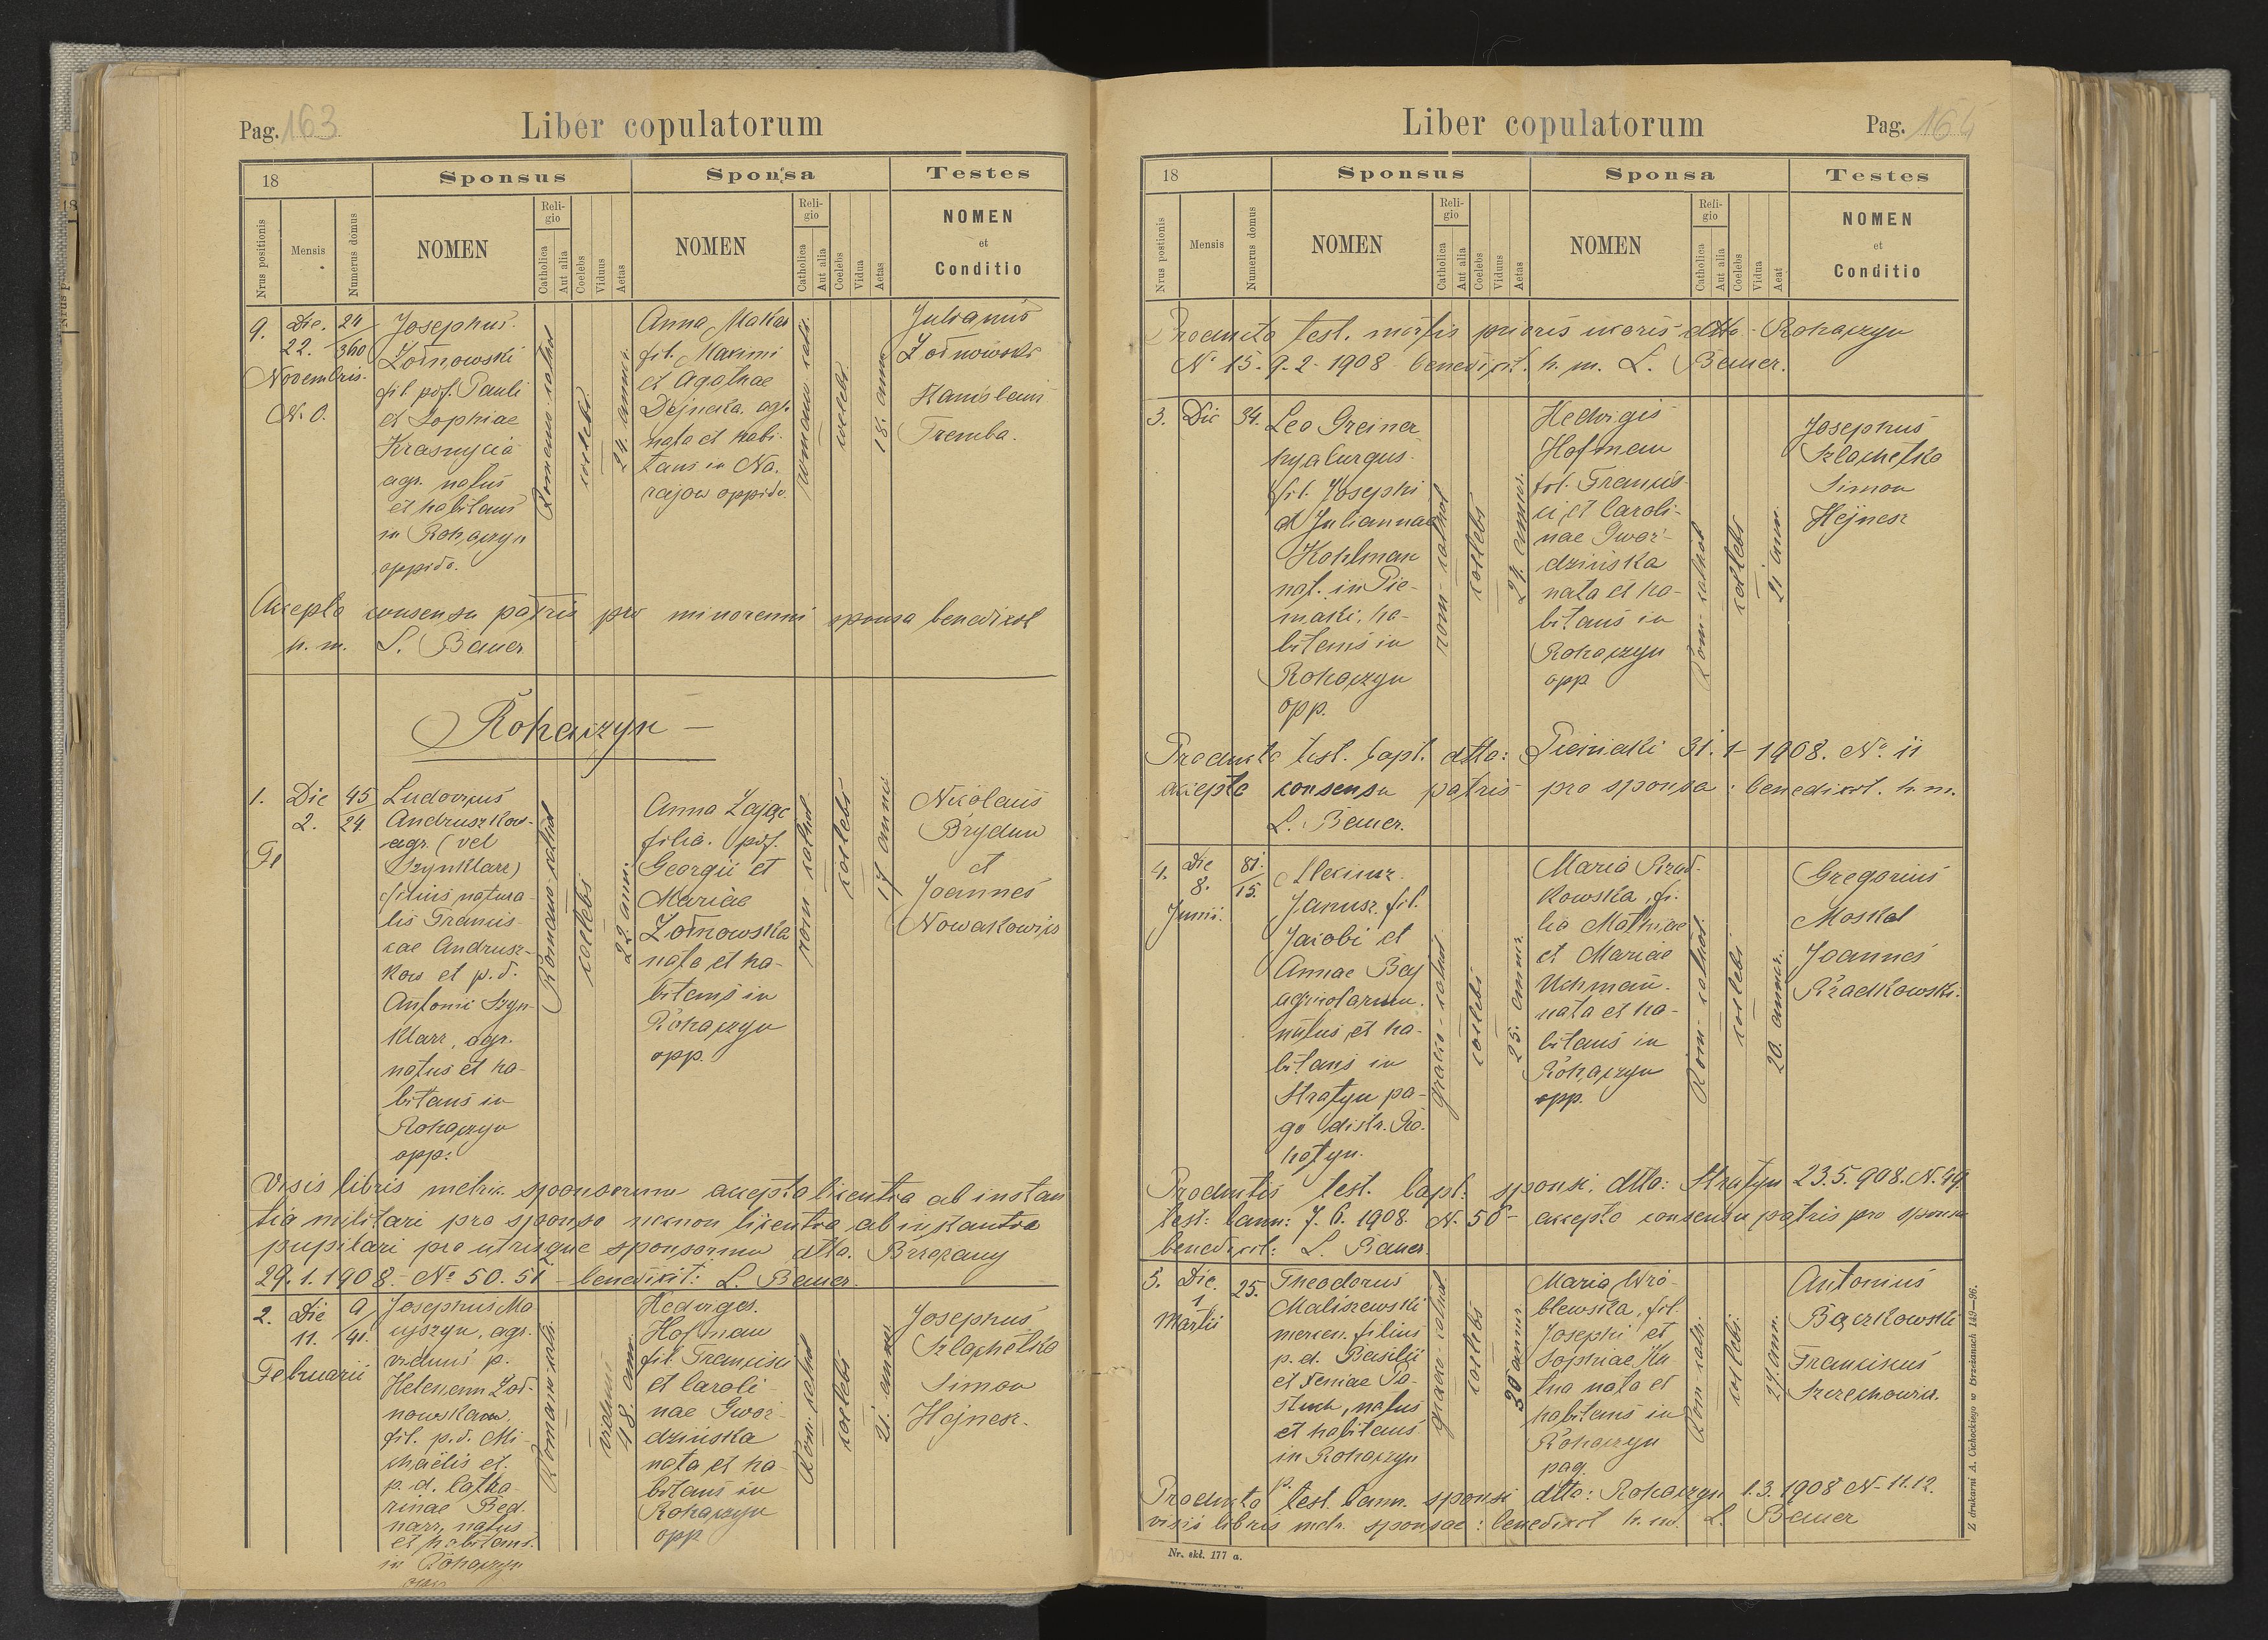 Pag. 163
Liber copulatorum
18
Sponsus
Sponsa
Testes
Nrus positionis
Mensis
Numerus domus
NOMEN
Religio
Catholica
Aut alia
Coelebs
Viduus
Aetas
NOMEN
Religio
Catholica
Aut alia
Coelebs
Vidua
Aetas
NOMEN
et
Conditio
9.
Die.
22.
Novembris.
N. O.
24
360
Josephus
Żołnowski
fil. p.d. Pauli
et Sophiae
agr. natus
et habitans
in Rohaczyn
oppido.
Romano-cathol
coelebs
24. annor.
Anna Makar
fil. Maximi
et Agathae
Dejneka agr.
nata et habi-
tans in Na-
rajow oppido.
romano cath.
coelebs
18. ann
Julianus
Żołnowski
Stanislaus
Tremba.
Accepto consensu patris pro minorenni sponsa benedixit
h. m. L. Bauer
Rohaczyn —
1.
Die
2.
Fe
45
24.
Ludovicus
Andruszkow-
agr. (vel
Szynklarz)
filius natura-
lis Francis-
cae Andrusz-
kow et p. d.
Antonii Szyn-
klarz, agr.
natus et ha-
bitans in
Rohaczyn
opp:
Romano-cathol
coelebs
22. anni.
Anna Zając
filia. p.d.
Georgii et
Mariae
Żołnowska
nata et ha-
bitans in
Rohaczyn
opp.
rom-cathol
coelebs
17 anni
Nicolaus
Brydun
et
Joannes
Nowakowski
Visis libris metric. sponsorum accepta licentia ab instan
tia militari pro sponso necnon licentia ab instantia
pupilari pro utrisque sponsorum dtto. Brzeżany
29. 1. 1908. No 50. 51 - benedixit: L. Bauer.
2.
Die
11.
Februarii
9
41.
Josephus Mo
czyn, agr.
viduus p.
Helenam Żoł-
nowskam.
fil. p.d. Mi-
chaelis et.
p. d. Catha-
rinae Bed
narz, natus
et habitans.
in Rohaczyn
opp
Romano-cath.
viduus
48. ann.
Hedviges.
Hofman
fil. Francisci
et Caroli-
nae Gwoź-
dzinska
nata et ha-
bitans in
Rohaczyn
opp
Rom. cathol
coelebs
21. annor
Josephus
Szlachetka
Simon
Hejnesz.
Liber copulatorum
Pag. 164
18
Sponsus
Sponsa
Testes
Nrus postionis
Mensis
Numerus domus
NOMEN
Religio
Catholica
Aut alia
Coelebs
Viduus
Aetas
NOMEN
Religio
Catholica
Aut alia
Coelebs
Vidua
Aeat
NOMEN
et
Conditio
Producto test. mortis prioris uxoris dtto Rohaczyn
No 15. 9. 2. 1908 benedixit. h. m. L. Bauer.
3.
Die
34.
Leo Greiner
hyalurgus.
fil. Josephi
et Juliannae
Kohlman
nat. in Pie-
niaki, ha-
bitans in
Rohaczyn
opp.
rom-cathol
coelebs
24. annor.
Hedvigis
Hofman
fil. Francis-
ci, et Caroli-
nae Gwoź-
dzińska
nata et ha-
bitans in
Rohaczyn
opp
Rom-cathol
coelebs
21 ann.
Josephus
Szlachetka
Simon
Hejnesz
Producto test. bapt. dtto: Pieniaki 31. 1 1908. No 11
accepto consensu patris pro sponsa: benedixit. h. m.
L. Bauer.
4.
Die
8.
Junii.
81.
15.
Alexius.
Janusz. fil.
Jacobi et
Annae Baj
agricolarum.
natus et ha-
bitans in
Stratyn pa-
go distr. Ro-
hatyn.
graeco-cathol
coelebs
25. annor.
Maria Rząd-
kowska, fi-
lia Mathiae
et Mariae
Uchman.
nata et ha-
bitans in
Rohaczyn
opp.
Rom-cathol.
coelebs
20. annor.
Gregorius
Moskal
Joannes
Rządkowski.
Productis test. bapt. sponsi. dtto: Stratyn 23. 5. 908. N. 49
test: bann: 7. 6. 1908. N. 50 - accepto consensu patris pro sponsa
benedixit: L. Bauer.
5.
Die
1
Martii
25.
Theodorus
Maliszewski
mercen. filius
p. d. Basilii
et Xeniae Pa-
stuch, natus
et habitans
in Rohaczyn
p.
graeco-cathol
coelebs
30 annor.
Maria Wró-
blewska, fil.
Josephi et
Sophiae Ku
nata et
habitans in
Rohaczyn
pag.
Rom-cath.
coelebs.
24. ann.
Antonius
Bączkowski
Franciscus
Szczechowicz.
Producto test. bann. sponsi dtto: Rohaczyn 1. 3. 1908 N. 11. 12.
visis libris metr. sponsae: benedixit h. m. L. Bauer
Nr. skł. 177 a.
Z drukarni A. Cichockiego w Brzeżanach 149—96.